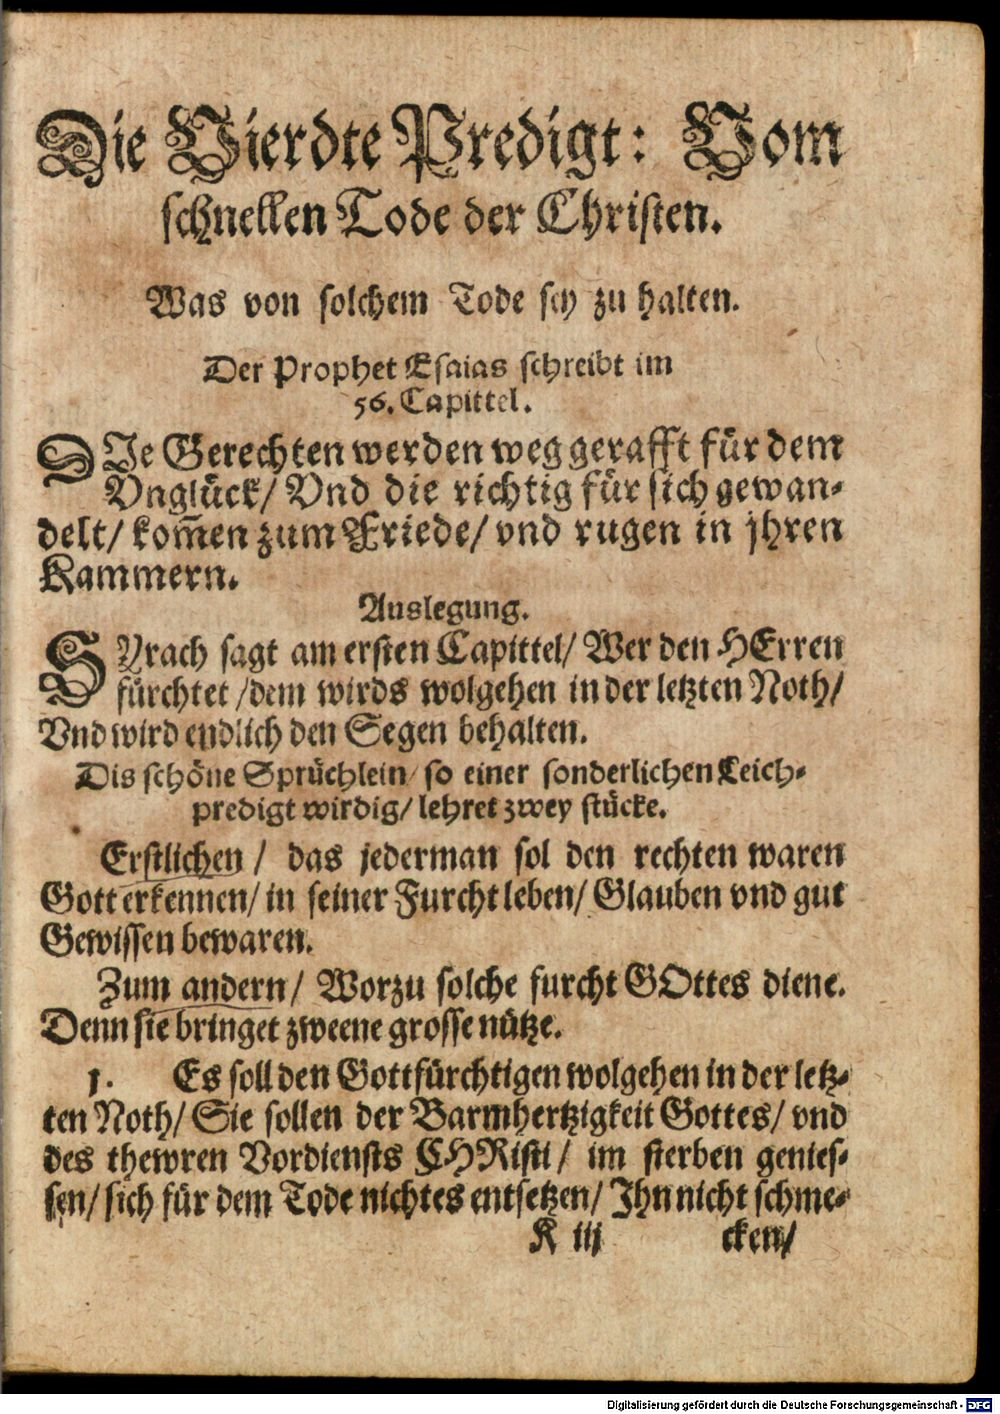 Die Vierdte Predigt: Vom
schnellen Tode der Christen.
Was von solchem Tode sey zu halten.
Der Prophet Esaias schreibt im
56. Capittel.
DIe Gerechten werden weggerafft für dem
Vnglück/ Vnd die richtig für sich gewan-
delt/ kom̃en zum Friede/ vnd rugen in jhren
Kammern.
Auslegung.
SYrach sagt am ersten Capittel/ Wer den HErren
fürchtet/ dem wirds wolgehen in der letzten Noth/
Vnd wird endlich den Segen behalten.
Dis schöne Sprüchlein/ so einer sonderlichen Leich-
predigt wirdig/ lehret zwey stücke.
Erstlichen/ das jederman sol den rechten waren
Gott erkennen/ in seiner Furcht leben/ Glauben vnd gut
Gewissen bewaren.
Zum andern/ Worzu solche furcht GOttes diene.
Denn sie bringet zweene grosse nütze.
1. Es soll den Gottfürchtigen wolgehen in der letz-
ten Noth/ Sie sollen der Barmhertzigkeit Gottes/ vnd
des thewren Vordiensts CHRisti/ im sterben genies-
sen/ sich für dem Tode nichtes entsetzen/ Ihn nicht schme-
K iij cken/
Digitalisierung gefördert durch die Deutsche Forschungsgemeinschaft - DFG